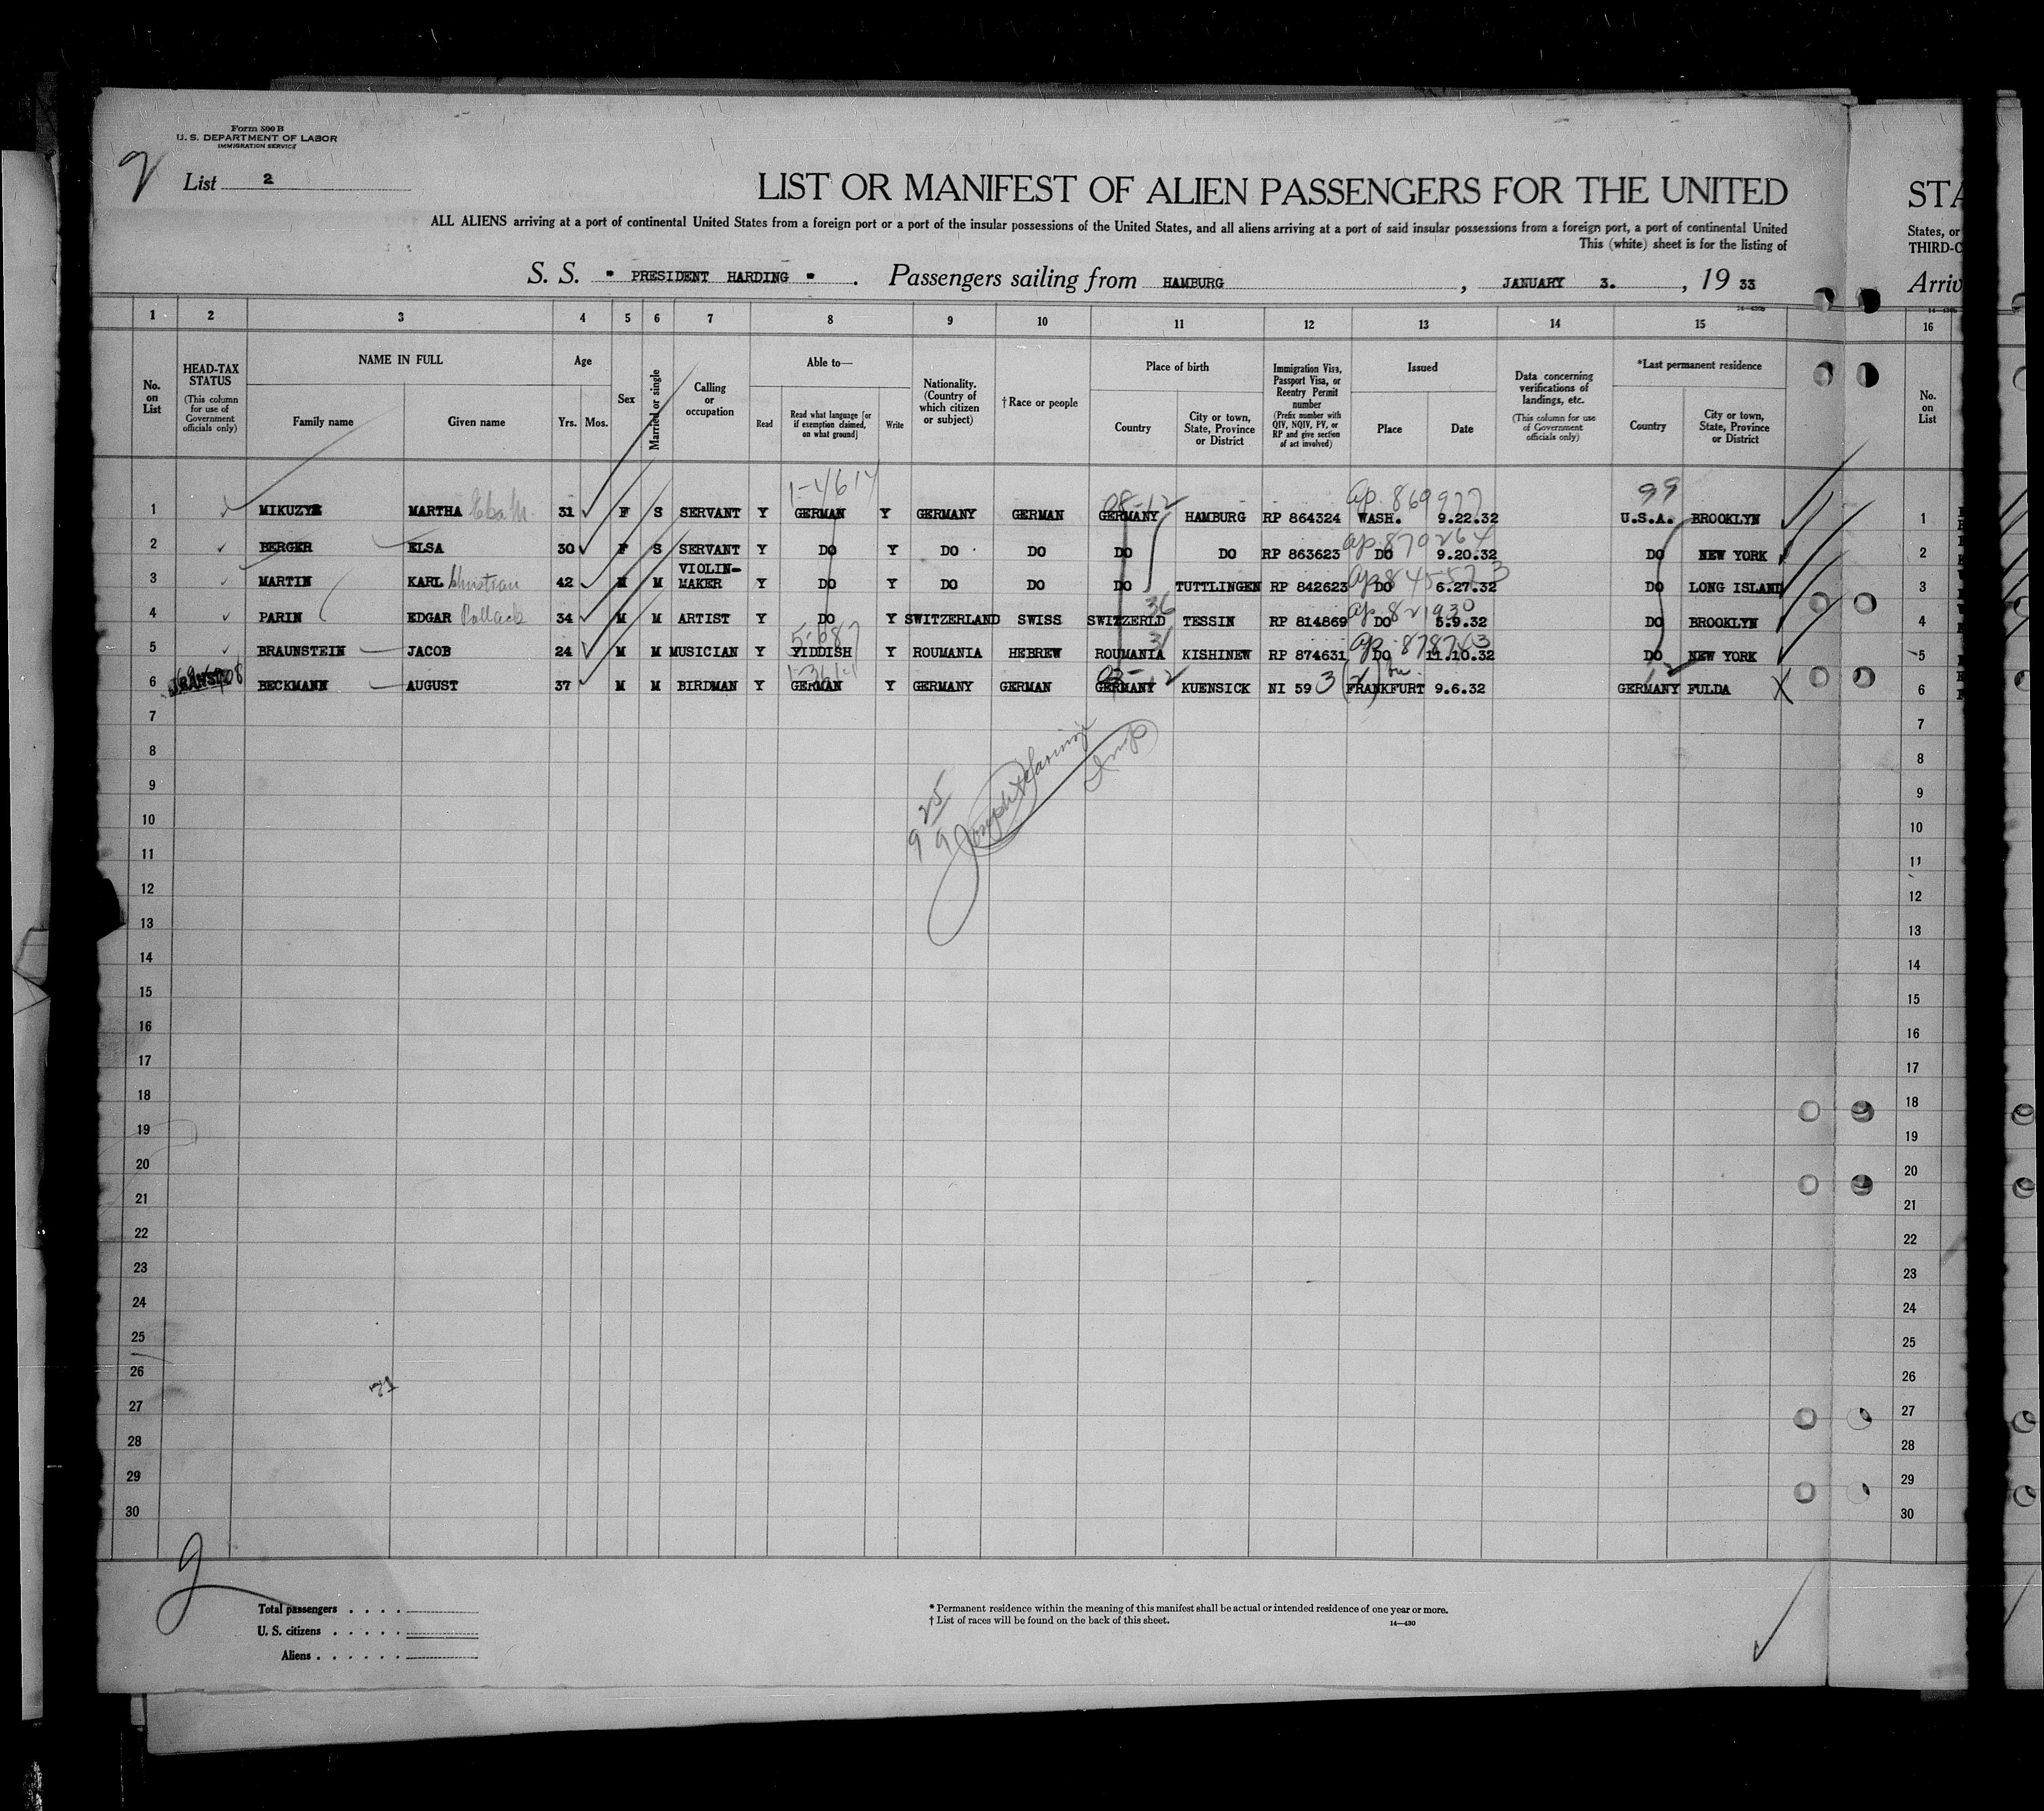 Form 500 B
U. S. DEPARTMENT OF LABOR
IMMIGRATION SERVICE
List 2
LIST OR MANIFEST OF ALIEN PASSENGERS FOR THE UNITED
STA
ALL ALIENS arriving at a port of continental United States from a foreign port or a port of the insular possessions of the United States, and all aliens arriving at a port of said insular possessions from a foreign port, a port of continental United
States, or
This (white) sheet is for the listing of
THIRD-C
S. S. " PRESIDENT HARDING " . Passengers sailing from HAMBURG , JANUARY 3. , 19 33
Arriv
1 2 3 4 5 6 7 8 9 10 11 12 13 14 15 16
No. on List
HEAD-TAX STATUS (This column for use of Government officials only)
NAME IN FULL
Family name Given name
Age
Yrs. Mos.
Sex
Married or single
Calling or occupation
Able to—
Read Read what language [or if exemption claimed, on what ground] Write
Nationality. (Country of which citizen or subject)
† Race or people
Place of birth
Country City or town, State, Province or District
Immigration Visa, Passport Visa, or Reentry Permit number (Prefix number with QIV, NQIV, PV, or RP and give section of act involved)
Issued
Place Date
Data concerning verifications of landings, etc. (This column for use of Government officials only)
*Last permanent residence
Country City or town, State, Province or District
No. on List
1-4614 08-12 ap. 869977 99
1 MARTHA 31 F S SERVANT Y GERMAN Y GERMANY GERMAN GERMANY HAMBURG RP 864324 WASH. 9.22.32 U.S.A. BROOKLYN 1
ap 870264
2 BERGER ELSA 30 F S SERVANT Y DO Y DO DO DO DO RP 863623 DO 9.20.32 DO NEW YORK 2
3 MARTIN KARL Christian 42 M M VIOLIN-MAKER Y DO Y DO DO DO TUTTLINGEN RP 842623 DO 6.27.32 DO LONG ISLAND 3
36 ap. 821930
4 PARIN EDGAR Pollack 34 M M ARTIST Y DO Y SWITZERLAND SWISS SWITZERLD TESSIN RP 814869 DO 5.9.32 DO BROOKLYN 4
5-687 31 ap. 878763
5 BRAUNSTEIN JACOB 24 M M MUSICIAN Y YIDDISH Y ROUMANIA HEBREW ROUMANIA KISHINEW RP 874631 DO 11.10.32 DO NEW YORK 5
6 BECKMANN AUGUST 37 M M BIRDMAN Y GERMAN Y GERMANY GERMAN GERMANY KUENSICK NI 59 3 FRANKFURT 9.6.32 GERMANY FULDA X 6
7 7
8 8
9 9
10 10
11 11
12 12
13 13
14 14
15 15
16 16
17 17
18 18
19 19
20 20
21 21
22 22
23 23
24 24
25 25
26 26
27 27
28 28
29 29
30 30
25
99
Insp
71
2
Total passengers . . . .
U. S. citizens . . . . .
Aliens . . . . . .
* Permanent residence within the meaning of this manifest shall be actual or intended residence of one year or more.
† List of races will be found on the back of this sheet.
14—430